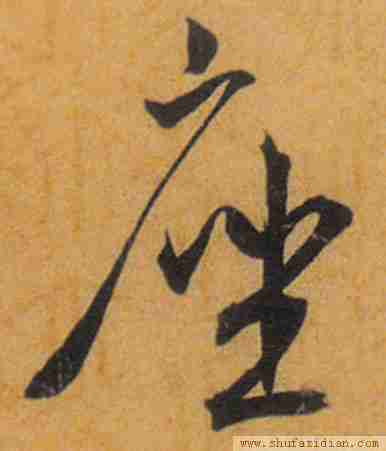 座
www.shufazidian.com